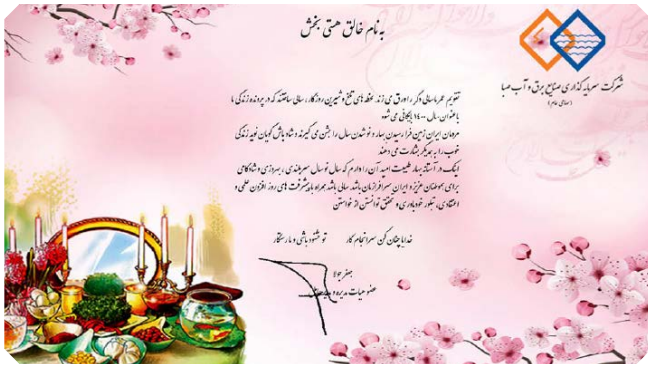 به نام خالق هستی بخش
شرکت سرمایه گذاری صنایع برق و آب صبا
(سهامی عام)
تقویم عمر ما سالی دگر را ورق می زند. لحظه های تلخ و شیرین روزگار، سالی ساختند که در پرونده زندگی ما
با عنوان سال ۱۴۰۰ بایگانی می شود
مردمان ایران زمین فرا رسیدن بهار و نو شدن سال را جشن می گیرند و شاد باش گویان نوید زندگی
خوب را به یکدیگر بشارت می دهند
اینک در آستانه بهار طبیعت امید آن را دارم که سال نو سال سربلندی ، بهروزی و شادکامی
برای هموطنان عزیز و ایران سرافرازمان باشد. سالی باشد همراه با پیشرفت های روز افزون علمی و
اعتقادی، تبلور خودباوری و تحقق توانستن از خواستن
خدایا چنان کن سرانجام کار تو خشنود باشی و ما رستگار
جعفر جولا
عضو هیات مدیره و مدیرعامل